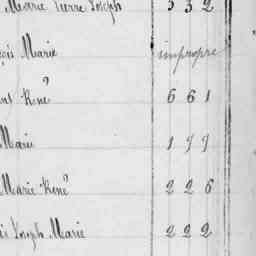 Marie Pierre Joseph 3 3 2
Marie impropre
René 6 6 1
Marie 1 9 9
Marie René 2 2 6
Joseph Marie 2 2 2